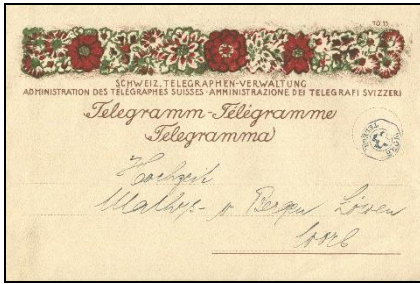 TO 11
SCHWEIZ. TELEGRAPHEN-VERWALTUNG
ADMINISTRATION DES TÉLÉGRAPHES SUISSES · AMMINISTRAZIONE DEI TELEGRAFI SVIZZERI
Telegramm-Télégramme
(Telegramma)
Hochzeit
Löwen
Worb